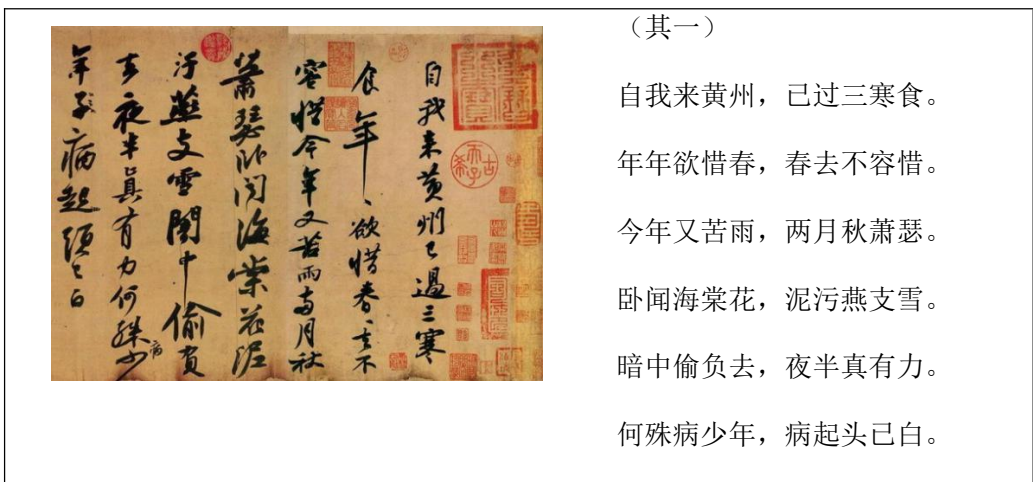 自我来黄州已過三寒
食年〻欲惜春〻去不
容惜今年又苦雨两月秋
蕭瑟卧聞海棠花泥
汙燕支雪闇中偷負
去夜半真有力何殊少病
年子病起頭已白
古希天子
（其一）
自我来黄州，已过三寒食。
年年欲惜春，春去不容惜。
今年又苦雨，两月秋萧瑟。
卧闻海棠花，泥污燕支雪。
暗中偷负去，夜半真有力。
何殊病少年，病起头已白。